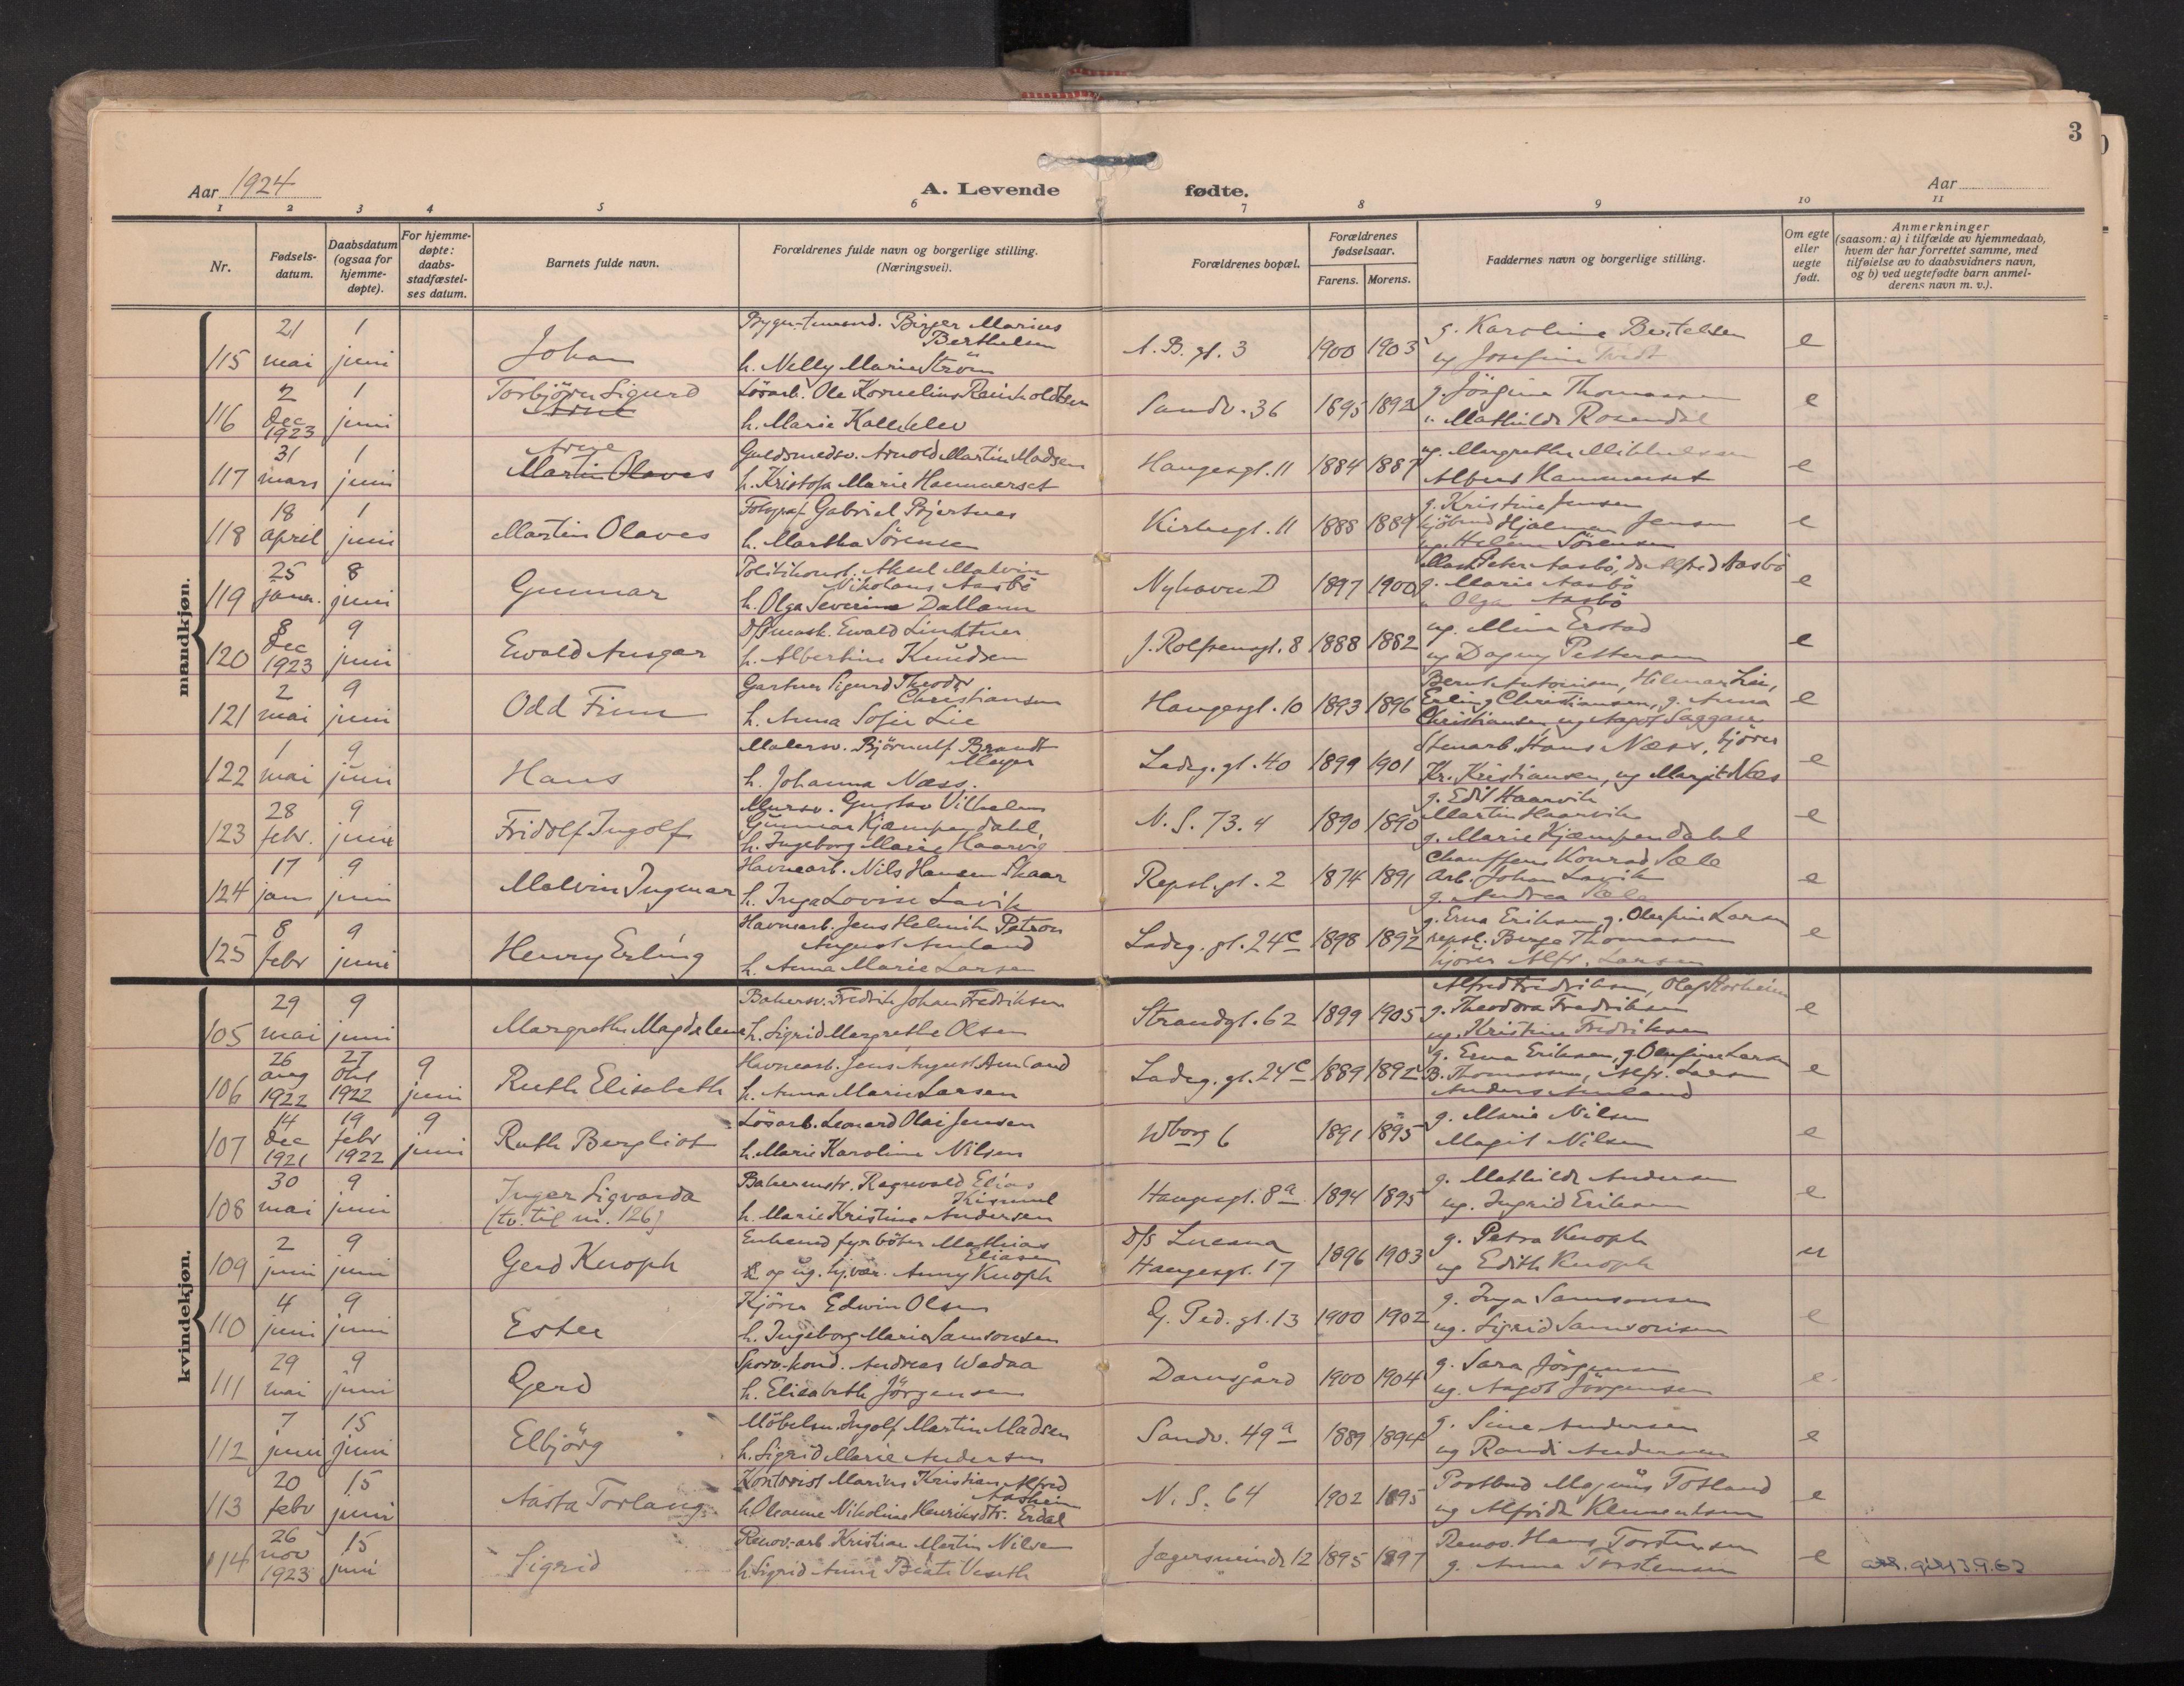 3
Aar 1924
A. Levende fødte.
Aar
1 2 3 4 5 6 7 8 9 10 11
Nr.
Fødsels-
datum.
Daabsdatum
(ogsaa for
hjemme-
døpte).
For hjemme-
døpte:
daabs-
stadfæstel-
ses datum.
Barnets fulde navn.
Forældrenes fulde navn og borgerlige stilling.
(Næringsvei).
Forældrenes bopæl.
Forældrenes
fødselsaar.
Farens. Morens.
Faddernes navn og borgerlige stilling.
Om egte
eller
uegte
født.
Anmerkninger
(saasom: a) i tilfælde av hjemmedaab,
hvem der har forrettet samme, med
tilføielse av to daabsvidners navn,
og b) ved uegtefødte barn anmel-
derens navn m. v.).
mandkjøn.
115 21 mai 1 juni Johan
Birger Marius
Berthelsen
h. Nelly Marie Ström
A. B. gt. 3 1900 1903
g. Karoline Bertelsen
ug Josefine
e
116 2 dec 1923 1 juni Torbjörn Sigurd
Arne
Lösarb. Ole Kornelius Reinholdtsen
h. Marie Kalleklev
Sandv. 36 1895 1892
g. Jörgine Thomassen
" Mathilde Rosendal
e
117 31 mars 1 juni Arne
Martin Olaves
Guldsmedsv. Arnold Martin Madsen
h. Kristofa Marie Hammerset
Haugesgt. 11 1884 1887
ug. Margrethe Mikkelsen
Albert Hammerset
e
118 18 april 1 juni Martin Olaves
Fotograf Gabriel Bjertnes
h. Martha Sörensen
Kirkegt. 11 1888 1889
g. Kristine Jensen
Hjalmar Jensen
ug. Helene Sörensen
e
119 25 januar. 8 juni Gunnar
Politikonst. Aksel Malvin
Nikolaus Aasbö
h. Olga Severine Dallann
Nyhavn D 1897 1900
Peter Aasbö, do Alfred Aasbö
g. Marie Aasbö
" Olga Aasbö
e
120 8 dec 1923 9 juni Ewald Ansgar
D/S mask. Ewald Lindtner
h. Albertine Knudsen
J. Rolfsensgt. 8 1888 1882
ug. Mina Erstad
ug Dagny Pettersen
e
121 2 mai 9 juni Odd Finn
Gartner Sigurd Theodor
Christiansen
h. Anna Sofie Lie
Haugesgt. 10 1893 1896
Bernt Antonisen, Hilmar Lie,
Erling Christiansen, g. Anna
Christiansen, ug Aagot Saggau
e
122 1 mai 9 juni Hans
Malersv. Björnulf Brandt
Meyer
h. Johanna Næss.
Ladeg. gt. 40 1899 1901
Stenarb. Hans Næss, kjörer
Kr. Kristiansen, ug Margit Næs
e
123 28 febr. 9 juni Fridolf Ingolf
Mursv. Gustav Vilhelm
Gunnar Kjæmpendahl,
h. Ingeborg Marie Haarvig
N. S. 73. 4 1890 1890
g. Edit Haarvik
Martin Haarvik
g. Marie Kjæmpendahl
e
124 17 jan 9 juni Malvin Ingmar
Havnearb. Nils Hansen Skaar
h. Inga Lovise Lavik
Repsl. gt. 2 1874 1891
Chauffeur Konrad Sæle
Arb. Johan Lavik
g. Andrea Sæle
e
125 8 febr 9 juni Henry Erling
Havnearb. Jens Helmik Petron
August Amland
h. Anna Marie Larsen
Ladeg. gt. 24c 1898 1892
g. Erna Eriksen, g. Olufine Larsen
repsl. Berge Thomassen
kjörer Alfr. Larsen
e
kvindekjøn.
105 29 mai 9 juni Margrethe Magdalene
Bakersv. Fredrik Johan Fredriksen
h. Sigrid Margrethe Olsen
Strandgt. 62 1899 1905
Alfred Fredriksen, Olaf Storheim
g. Theodora Fredriksen
ug. Kristine Fredriksen
e
106 26 aug 1922 27 okt 1922 9 juni Ruth Elisabeth
Havnearb. Jens August Amland
h. Anna Marie Larsen
Ladeg. gt. 24c 1889 1892
g. Erna Eriksen, g. Olufine Larsen
B. Thomassen, Alfr. Larsen
Anders Amland
e
107 14 dec 1921 19 febr 1922 9 juni Ruth Bergliot
Lösarb. Leonard Olai Jensen
h. Marie Karoline Nilsen
Wborg 6 1891 1895
g. Marie Nilsen
Magit Nilsen
e
108 30 mai 9 juni Inger Sigvarda
(tv. til nr. 126)
Bakermstr. Ragnvald Elias
Kismul
h. Marie Kristine Andersen
Haugesgt. 8a 1894 1895
g. Mathilde Andersen
ug. Ingrid Eriksen
e
109 2 juni 9 juni Gerd Knoph
Enkemd fyrböter Mathias
Eliasen
og ug. hj.vær. Anny Knoph
D/S Lucana
Haugesgt. 17 1896 1903
g. Petra Knoph
ug Edith Knoph
u
110 4 juni 9 juni Ester
Kjörer Edwin Olsen
h. Ingeborg Marie Samsonsen
G. Ped. gt. 13 1900 1902
g. Inga Samsonsen
ug. Sigrid Samsonsen
e
111 29 mai 9 juni Gerd
Sporv-kond. Andreas Wedaa
h. Elisabeth Jörgensen
Damsgård 1900 1904
g. Sara Jörgensen
ug. Aagot Jörgensen
e
112 7 juni 15 juni Elbjörg
Möbelsn. Ingolf Martin Madsen
h. Sigrid Marie Andersen
Sandv. 49a 1889 1894
g. Sine Andersen
ug Randi Andersen
e
113 20 febr 15 juni Aasta Torlaug
Kontorist Marius Kristian Alfred
Aasheim
h. Oleanne Nikoline Henriksdtr. Erdal
N. S. 64 1902 1895
Postbud Magnus Totland
ug Alfride Klementsen
e
114 26 nov 1923 15 juni Sigrid
Renov.-arb Kristian Martin Nilsen
h. Sigrid Anna Beate Veseth
Jægersminde 12 1895 1897
Renov. Hans Torstensen
g. Anna Torstensen
e
13.9.63